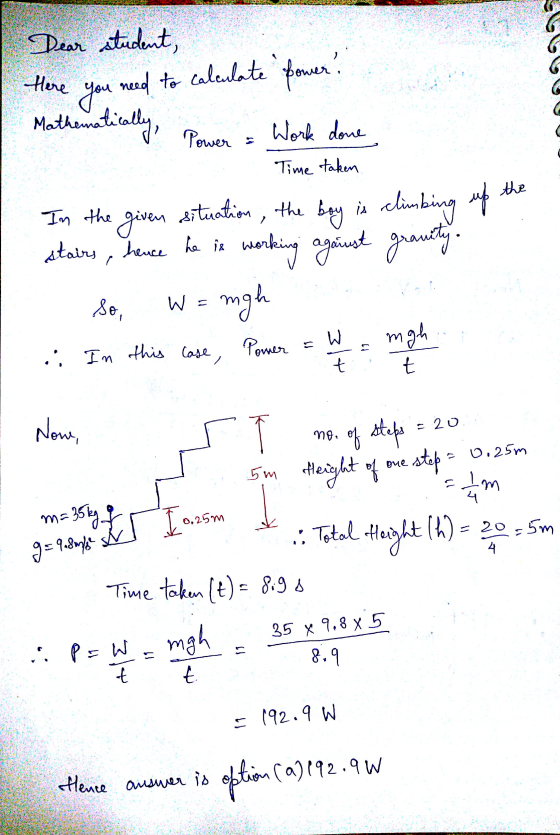 Dear student,
Here you need to calculate 'power'.
Mathematically,
Power = Work done / Time taken
In the given situation, the boy is climbing up the
stairs, hence he is working against gravity.
So, W = mgh
∴ In this case, Power = W/t = mgh/t
Now,
no. of steps = 20
Height of one step = 0.25m
= 1/4 m
5m
m=35kg
0.25m
g=9.8m/s²
∴ Total Height (h) = 20/4 = 5m
Time taken (t) = 8.9 s
∴ P = W/t = mgh/t = 35 x 9.8 x 5 / 8.9
= 192.9 W
Hence answer is option (a) 192.9 W